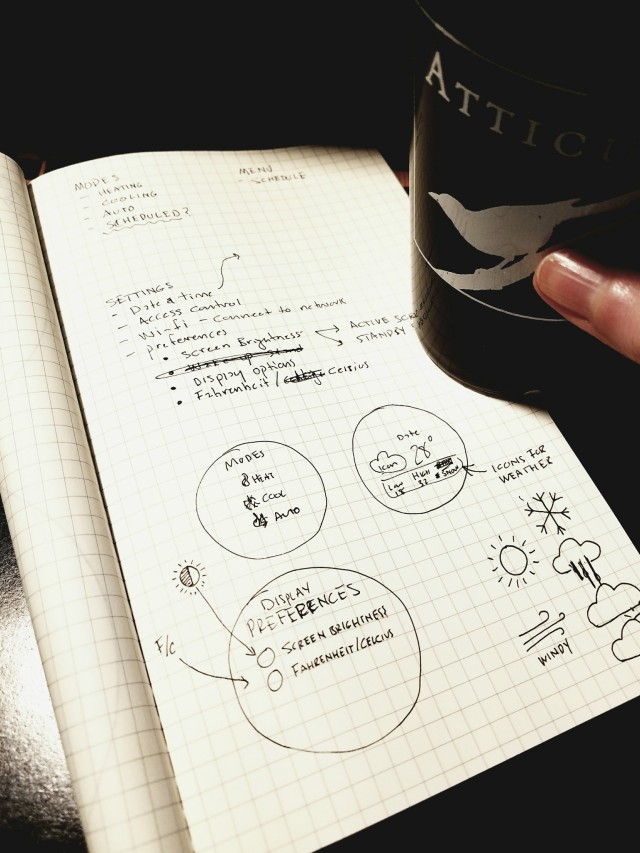 ATTIC
MODES
- HEATING
- COOLING
- AUTO
- SCHEDULED?
MENU
- SCHEDULE
SETTINGS
- Date & time
- Access Control
- Wi-fi - Connect to network
- preferences
• Screen Brightness
ACTIVE
STANDBY
• Display options
• Fahrenheit / Celsius
MODES
HEAT
COOL
AUTO
Date
Icon 28°
LOW HIGH
Snow
ICONS FOR
WEATHER
DISPLAY
PREFERENCES
SCREEN BRIGHTNESS
FAHRENHEIT/CELCIUS
F/C
WINDY